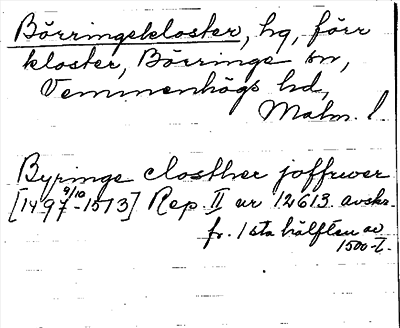 Börringekloster, hg, förr
kloster, Börringe sn,
Vemmenhögs hd,
Malm. l.
Byringe closther joffrwer
[1497 9/10 - 1513] Rep. II nr 12613. avskr.
fr. 1sta hälften av
1500-t.